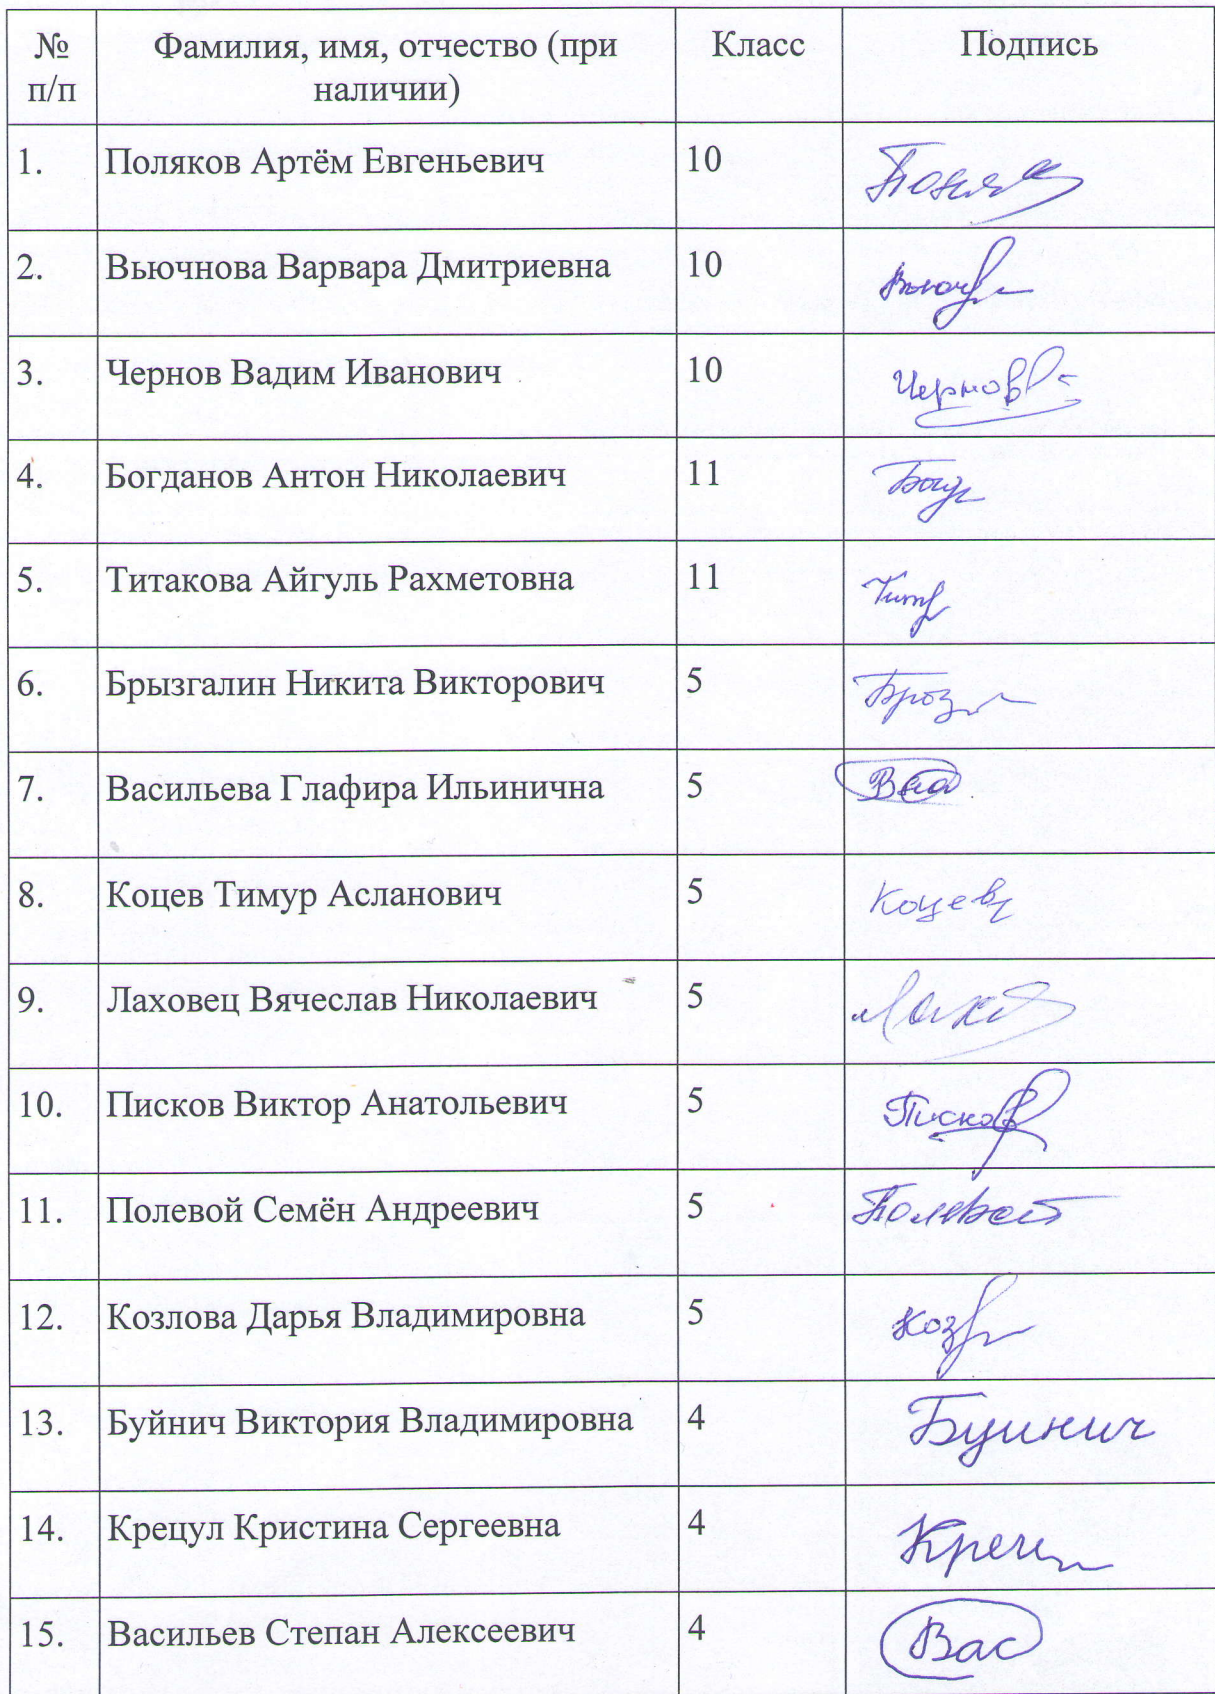 № п/п Фамилия, имя, отчество (при наличии) Класс Подпись
1. Поляков Артём Евгеньевич 10 Поляк
2. Вьючнова Варвара Дмитриевна 10 Вьюч
3. Чернов Вадим Иванович 10 Чернов
4. Богданов Антон Николаевич 11 Богд
5. Титакова Айгуль Рахметовна 11 Тит
6. Брызгалин Никита Викторович 5
7. Васильева Глафира Ильинична 5
8. Коцев Тимур Асланович 5 Коцев
9. Лаховец Вячеслав Николаевич 5 Лахов
10. Писков Виктор Анатольевич 5 Писков
11. Полевой Семён Андреевич 5 Полевой
12. Козлова Дарья Владимировна 5 Коз
13. Буйнич Виктория Владимировна 4 Буинич
14. Крецул Кристина Сергеевна 4 Крец
15. Васильев Степан Алексеевич 4 Вас